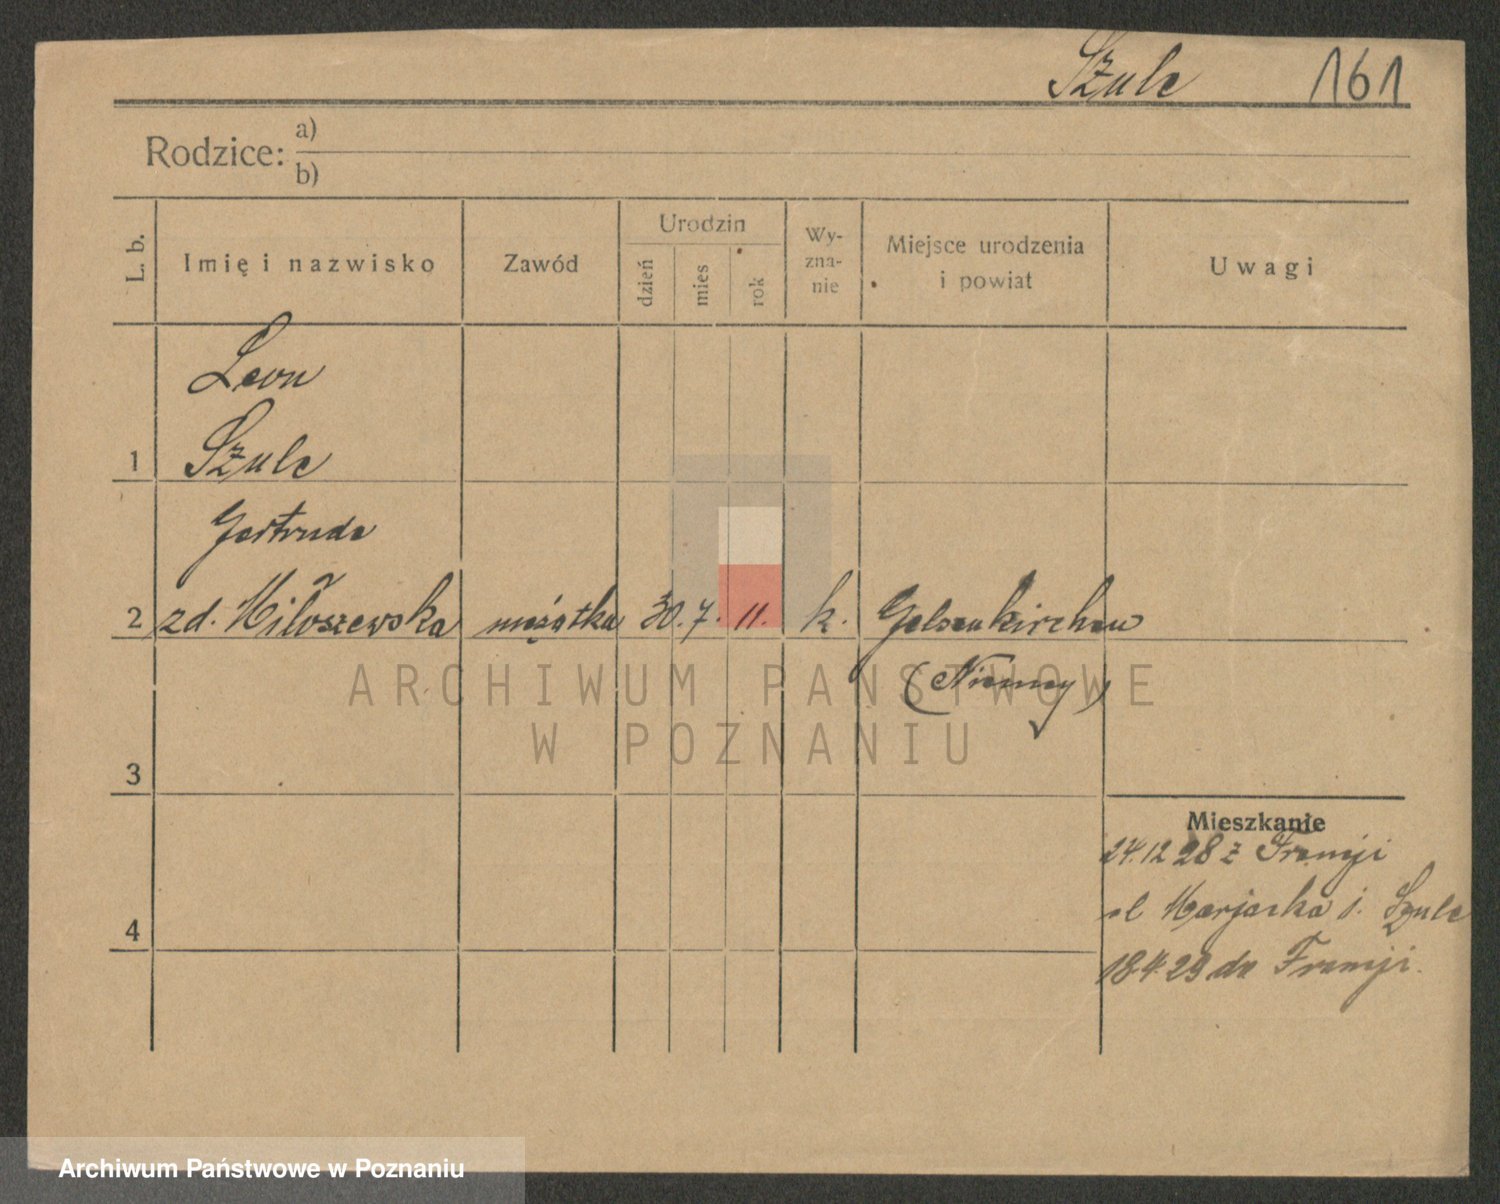 Szulc 161
Rodzice: a)
b)
L. b. Imię i nazwisko Zawód Urodzin dzień mies rok Wy-zna-nie Miejsce urodzenia i powiat Uwagi
Leon
1 Szulc
Gertruda
2 zd. Miłoszewska mężatka 30. 7. 11. k. Gelsenkirchen
(Niemcy)
ARCHIWUM PAŃSTWOWE
W POZNANIU
3
Mieszkanie
24.12 28 z Francji
ul Marjacka j. Szulc
4
18.4.29 do Francji.
Archiwum Państwowe w Poznaniu